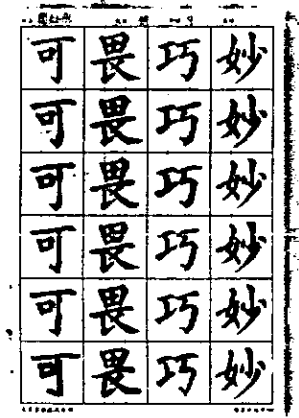 可畏巧妙
可畏巧妙
可畏巧妙
可畏巧妙
可畏巧妙
可畏巧妙